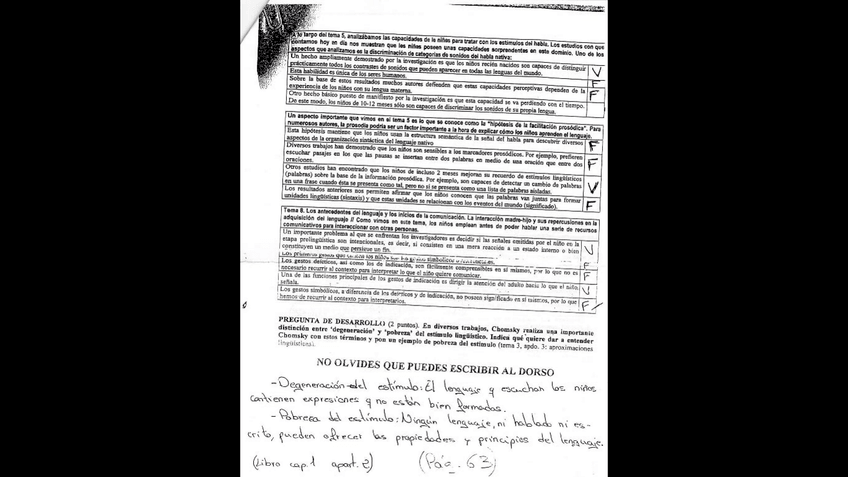 A lo largo del tema 5, analizábamos las capacidades de la niños para tratar con los estímulos del habla. Los estudios con que
contamos hoy en día nos muestran que les niños poseen unas capacidades sorprendentes en este dominio. Uno de los
aspectos que analizamos es la discriminación de categorías de sonidos del habla nativa:
Un hecho ampliamente demostrado por la investigación es que los niños recién nacidos son capaces de distinguir
prácticamente todos los contrastes de sonidos que pueden aparecer en todas las lenguas del mundo. V
Esta habilidad es única de los seres humanos. F
Sobre la base de estos resultados muchos autores defienden que estas capacidades perceptivas dependen de la
experiencia de los niños con su lengua materna. F
Otro hecho básico puesto de manifiesto por la investigación es que esta capacidad se va perdiendo con el tiempo.
De este modo, los niños de 10-12 meses sólo son capaces de discriminar los sonidos de su propia lengua.
Un aspecto importante que vimos en el tema 5 es lo que se conoce como la "hipótesis de la facilitación prosódica". Para
numerosos autores, la prosodia podría ser un factor importante a la hora de explicar cómo los niños aprenden el lenguaje.
Esta hipótesis mantiene que los niños usan la estructura semántica de la señal del habla para descubrir diversos
aspectos de la organización sintáctica del lenguaje nativo F
Diversos trabajos han demostrado que los niños son sensibles a los marcadores prosódicos. Por ejemplo, prefieren
escuchar pasajes en los que las pausas se insertan entre dos palabras en medio de una oración que entre dos
oraciones. F
Otros estudios han encontrado que los niños de incluso 2 meses mejoran su recuerdo de estímulos lingüísticos
(palabras) sobre la base de la información prosódica. Por ejemplo, son capaces de detectar un cambio de palabras
en una frase cuando ésta se presenta como tal, pero no si se presenta como una lista de palabras aisladas. V
Los resultados anteriores nos permiten afirmar que los niños conocen que las palabras van juntas para formar
unidades lingüísticas (sintaxis) y que estas unidades se relacionan con los eventos del mundo (significado). F
Tema 6. Los antecedentes del lenguaje y los inicios de la comunicación. La interacción madre-hijo y sus repercusiones en la
adquisición del lenguaje // Como vimos en este tema, los niños emplean antes de poder hablar una serie de recursos
comunicativos para interaccionar con otras personas.
Un importante problema al que se enfrentan los investigadores es decidir si las señales emitidas por el niño en la
etapa prelingüística son intencionales, es decir, si consisten en una mera reacción a un estado interno o bien
constituyen un medio que persigue un fin. V
Los primeros gestos que utilizan los niños son los gestos simbólicos F
Los gestos deícticos, así como los de indicación, son fácilmente comprensibles en sí mismos, por lo que no es
necesario recurrir al contexto para interpretar lo que el niño quiere comunicar. F
Una de las funciones principales de los gestos de indicación es dirigir la atención del adulto hacia lo que el niño
señala. V
Los gestos simbólicos, a diferencia de los deícticos y de indicación, no poseen significado en sí mismos, por lo que
hemos de recurrir al contexto para interpretarlos. F
PREGUNTA DE DESARROLLO (2 puntos). En diversos trabajos, Chomsky realiza una importante
distinción entre 'degeneración' y 'pobreza' del estímulo lingüístico. Indica qué quiere dar a entender
Chomsky con estos términos y pon un ejemplo de pobreza del estímulo (tema 3, apdo. 3: aproximaciones
lingüísticas).
NO OLVIDES QUE PUEDES ESCRIBIR AL DORSO
- Degeneración del estímulo: El lenguaje q escuchan los niños
contienen expresiones q no están bien formadas.
- Pobreza del estímulo: Ningún lenguaje, ni hablado ni es-
crito, pueden ofrecer las propiedades y principios del lenguaje.
(Libro cap. 1 apart. 2) (Pág. 63)